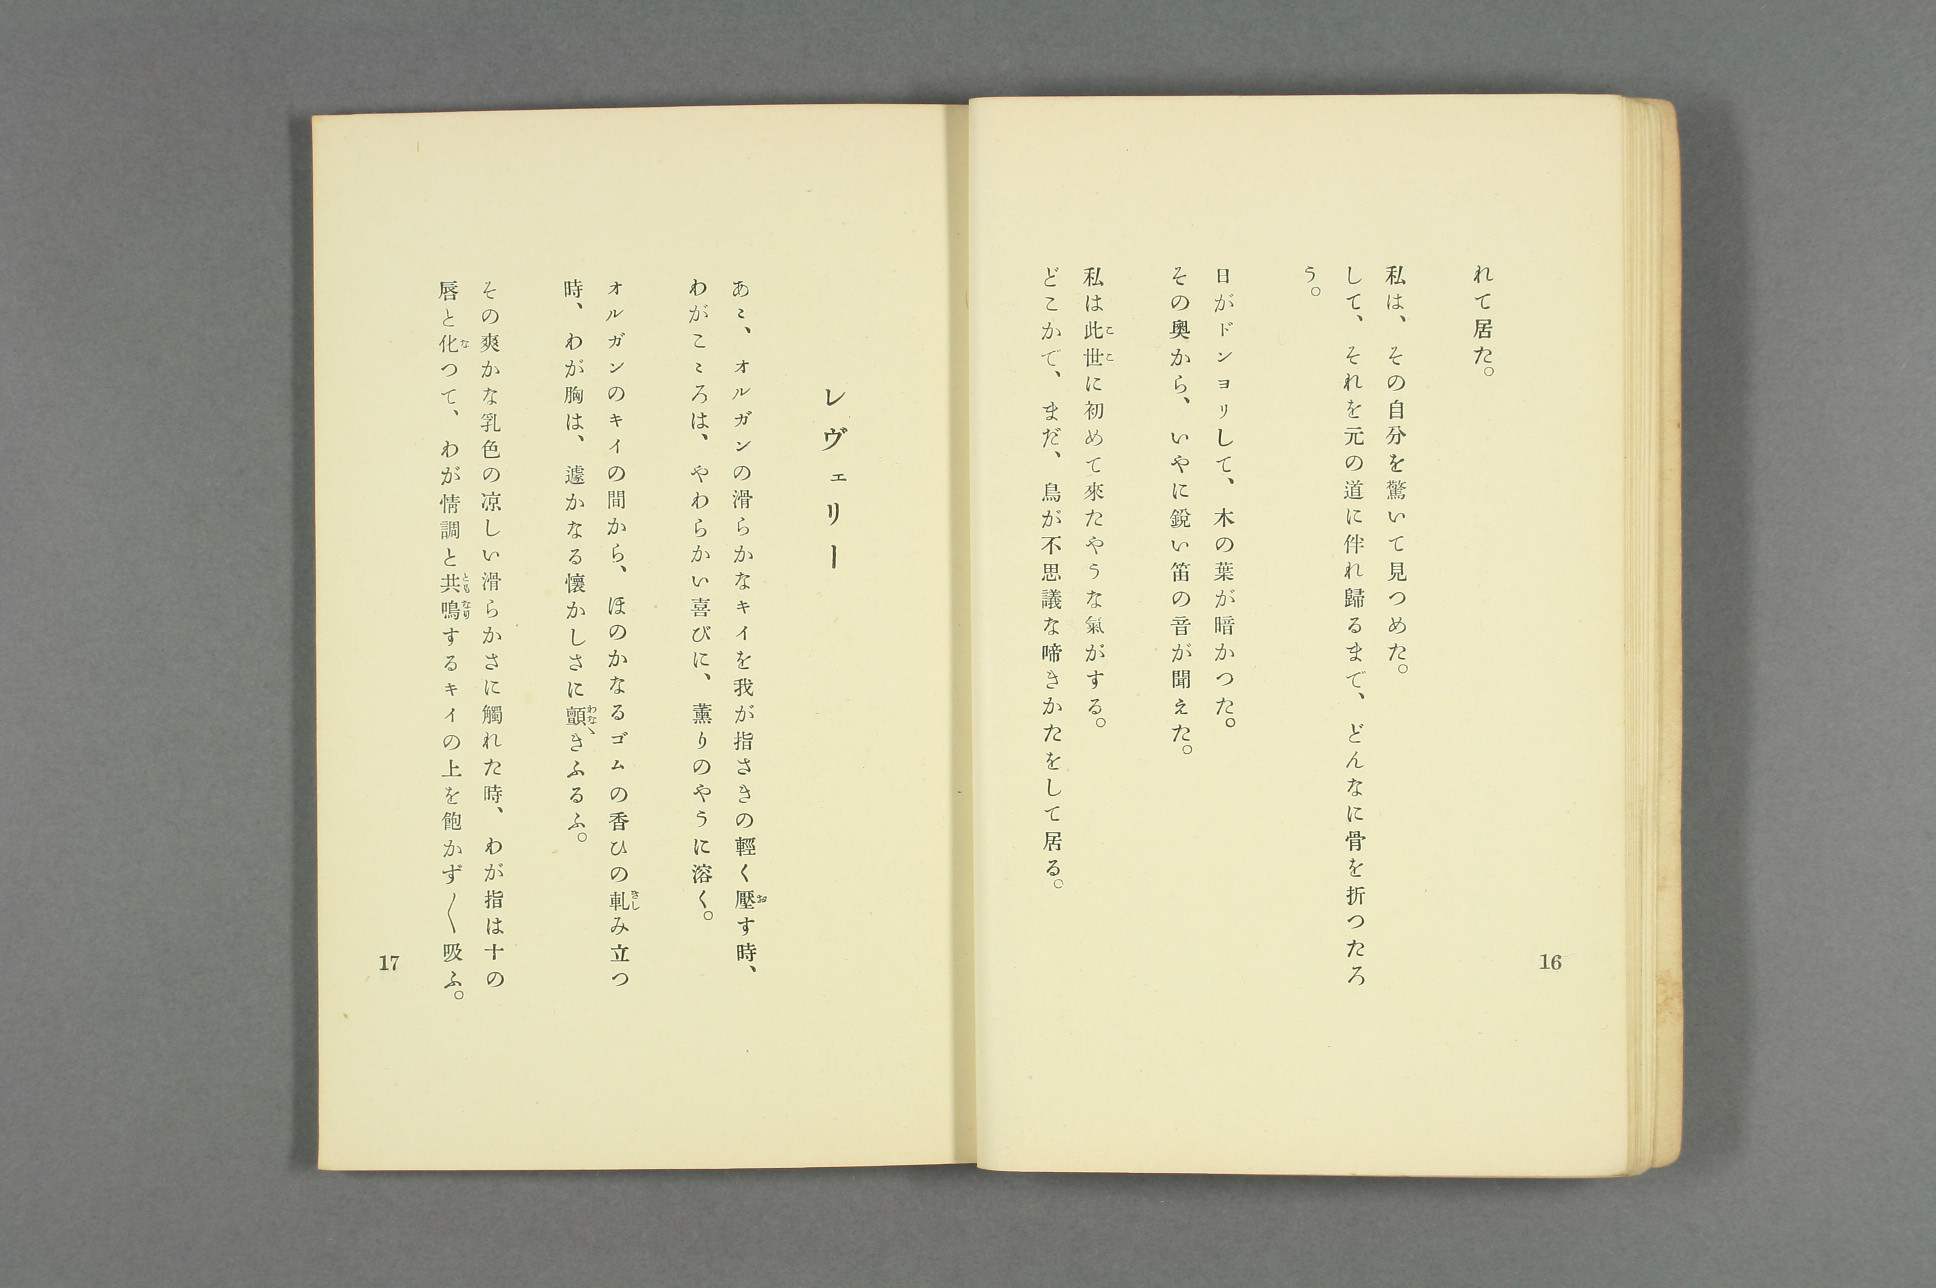 れて居た。
私は、その自分を驚いて見つめた。
して、それを元の道に伴れ歸るまで、どんなに骨を折つたろ
う。
日がドンヨリして、木の葉が暗かつた。
その奧から、いやに銳い笛の音が聞えた。
私は此世に初めて來たやうな氣がする。
ここ
どこかで、まだ、鳥が不思議な啼きかたをして居る。
16
レヴェリー
あゝ、オルガンの滑らかなキイを我が指さきの輕く壓す時、
お
わがこゝろは、やわらかい喜びに、薫りのやうに溶く。
オルガンのキイの間から、ほのかなるゴムの香ひの軋み立つ
きし
時、わが胸は、遽かなる懷かしさに顫きふるふ。
わなゝ
その爽かな乳色の凉しい滑らかさに觸れた時、わが指は十の
唇と化つて、わが情調と共鳴するキイの上を飽かず〱吸ふ。
な
ともなり
17